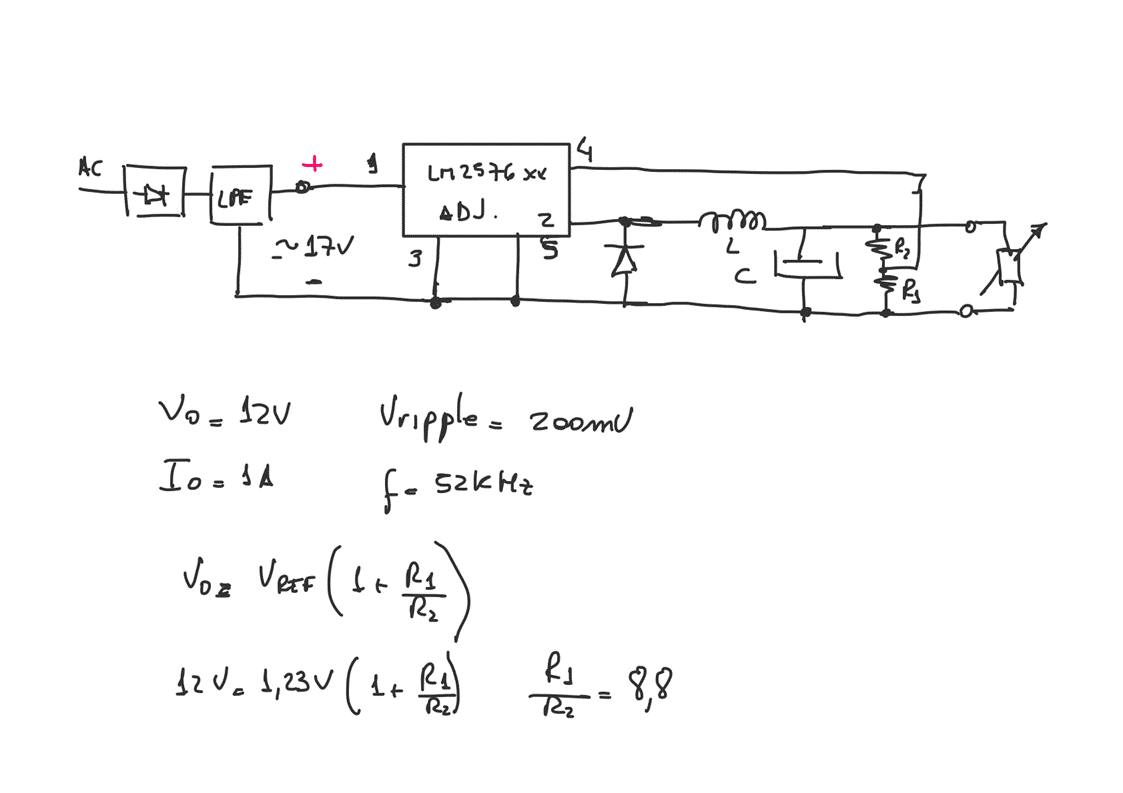 AC
+
1
LM2576 xx
ADJ.
4
2
5
3
LPF
~17V
-
L
C
R2
R1
Vo = 12V
Vripple = 200mV
Io = 1A
f = 52kHz
Vo = VREF (1 + R1/R2)
12V = 1,23V (1 + R1/R2)
R1/R2 = 8,8